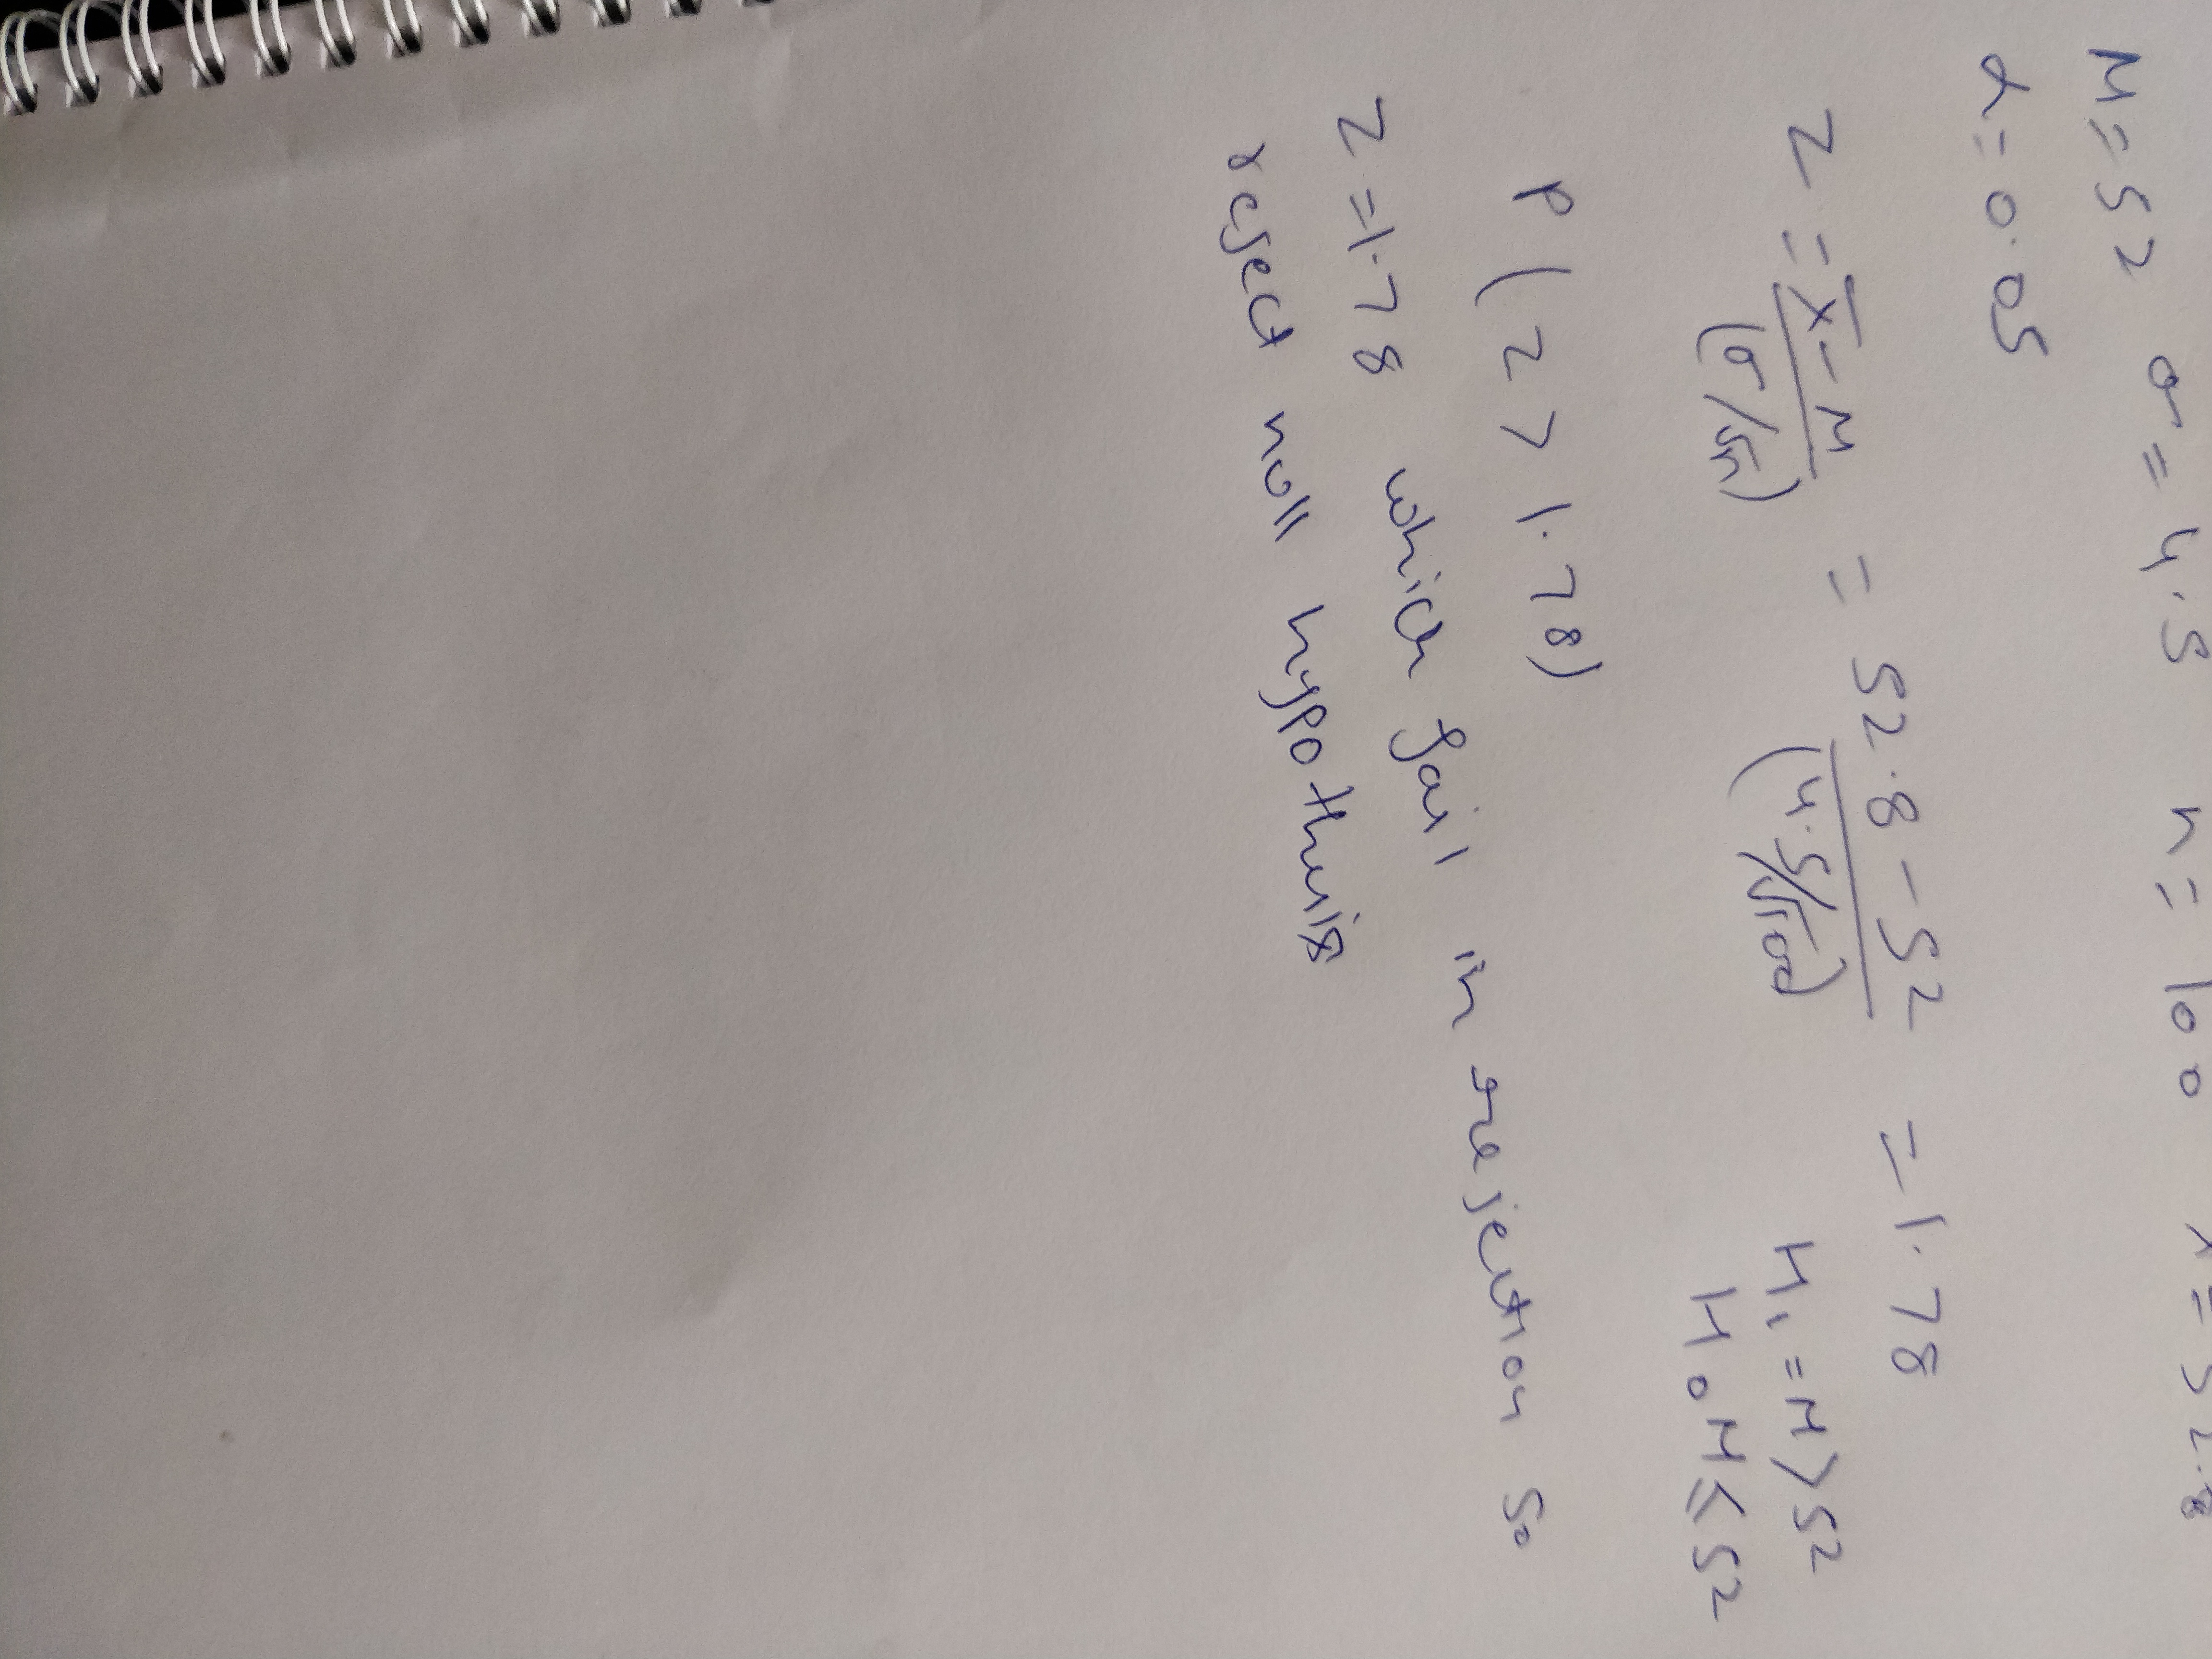 M = 52 σ = 4.5 n = 100 x̄ = 52.8
α = 0.05
z = x̄ - M / (σ/√n) = 52.8 - 52 / (4.5/√100) = 1.78
H₁ = M > 52
H₀ M ≤ 52
P (z > 1.78)
z = 1.78 which fail in rejection so
reject null hypothesis